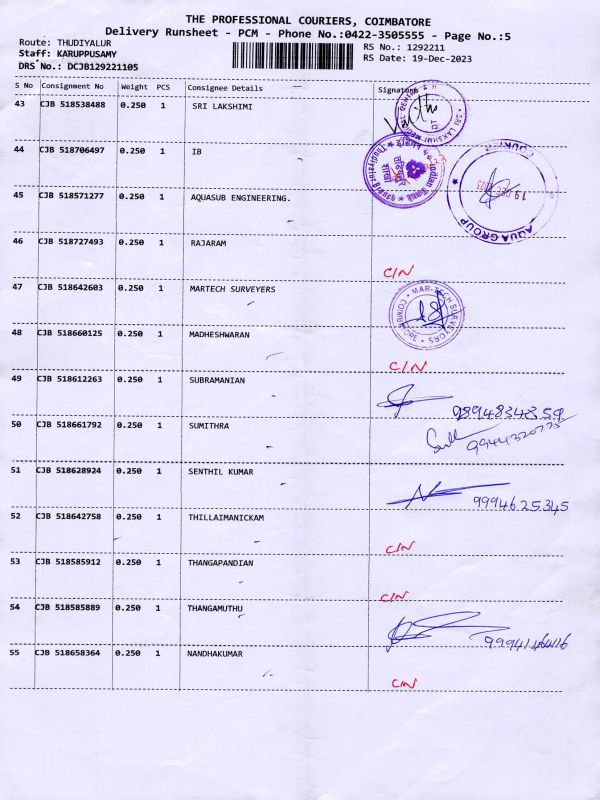 THE PROFESSIONAL COURIERS, COIMBATORE
Delivery Runsheet - PCM - Phone No.:0422-3505555 - Page No.:5
Route: THUDIYALUR RS No.: 1292211
Staff: KARUPPUSAMY RS Date: 19-Dec-2023
DRS No.: DCJB129221105
S No Consignment No Weight PCS Consignee Details Signature
43 CJB 518538488 0.250 1 SRI LAKSHIMI
44 CJB 518706497 0.250 1 IB
Indian Bank
COURIER
45 CJB 518571277 0.250 1 AQUASUB ENGINEERING.
AQUA GROUP
46 CJB 518727493 0.250 1 RAJARAM
C/N
47 CJB 518642603 0.250 1 MARTECH SURVEYERS
MAR-TECH SURVEYORS
COIMBATORE
48 CJB 518660125 0.250 1 MADHESHWARAN
C/N
49 CJB 518612263 0.250 1 SUBRAMANIAN
9894834859
50 CJB 518661792 0.250 1 SUMITHRA
51 CJB 518628924 0.250 1 SENTHIL KUMAR
9994625345
52 CJB 518642758 0.250 1 THILLAIMANICKAM
C/N
53 CJB 518585912 0.250 1 THANGAPANDIAN
C/N
54 CJB 518585889 0.250 1 THANGAMUTHU
55 CJB 518658364 0.250 1 NANDHAKUMAR
C/N